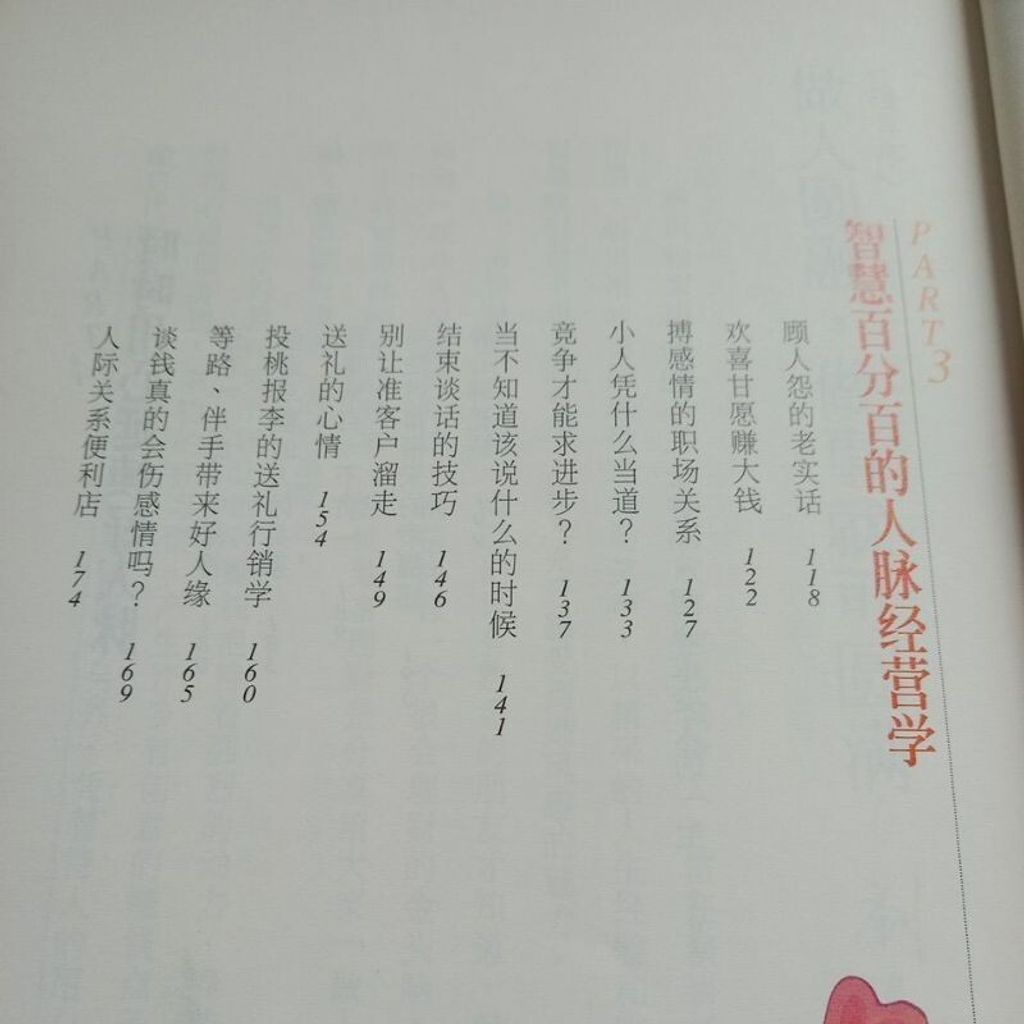 PART3
智慧百分百的人脉经营学
顾人怨的老实话 118
欢喜甘愿赚大钱 122
搏感情的职场关系 127
小人凭什么当道？ 133
竞争才能求进步？ 137
当不知道该说什么的时候 141
结束谈话的技巧 146
别让准客户溜走 149
送礼的心情 154
投桃报李的送礼行销学 160
等路、伴手带来好人缘 165
谈钱真的会伤感情吗？ 169
人际关系便利店 174